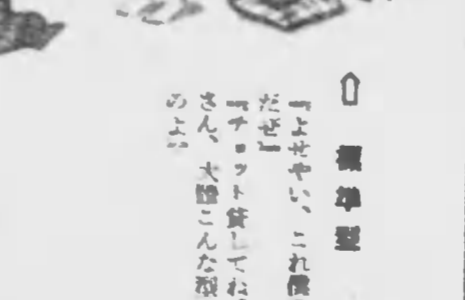 標準型
「よせやい、これ僕の
だぜ」
「チョット貸してね。
さん、大體こんな顔
のよ」